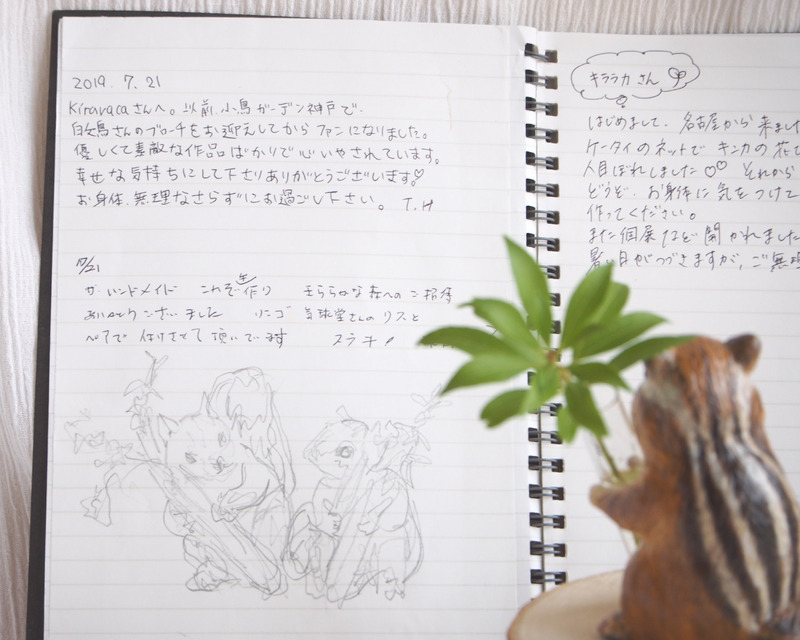 2019. 7. 21
Kiraracaさんへ。以前、小鳥ガーデン神戸で、
白文鳥さんのブローチをお迎えしてから ファンになりました。
優しくて素敵な作品ばかりで心いやされています。
幸せな気持ちにして下さりありがとうございます♡
お身体、無理なさらずにお過ごし下さい。 T.H
7/21
ザ・ハンドメイド これぞ 作り きららかな森へのご招待
ありがとうございました リンゴ 気球堂さんの リスと
ペアで 付けさせて 頂いています ステキ!
キララカ さん
はじめまして、名古屋から来まし
ケータイのネットで キンカの花
人目ぼれしました♡♡ それから
どうぞ、お身体に気をつけて
作ってください。
また個展など開かれました
暑い日がつづきますが、ご無理